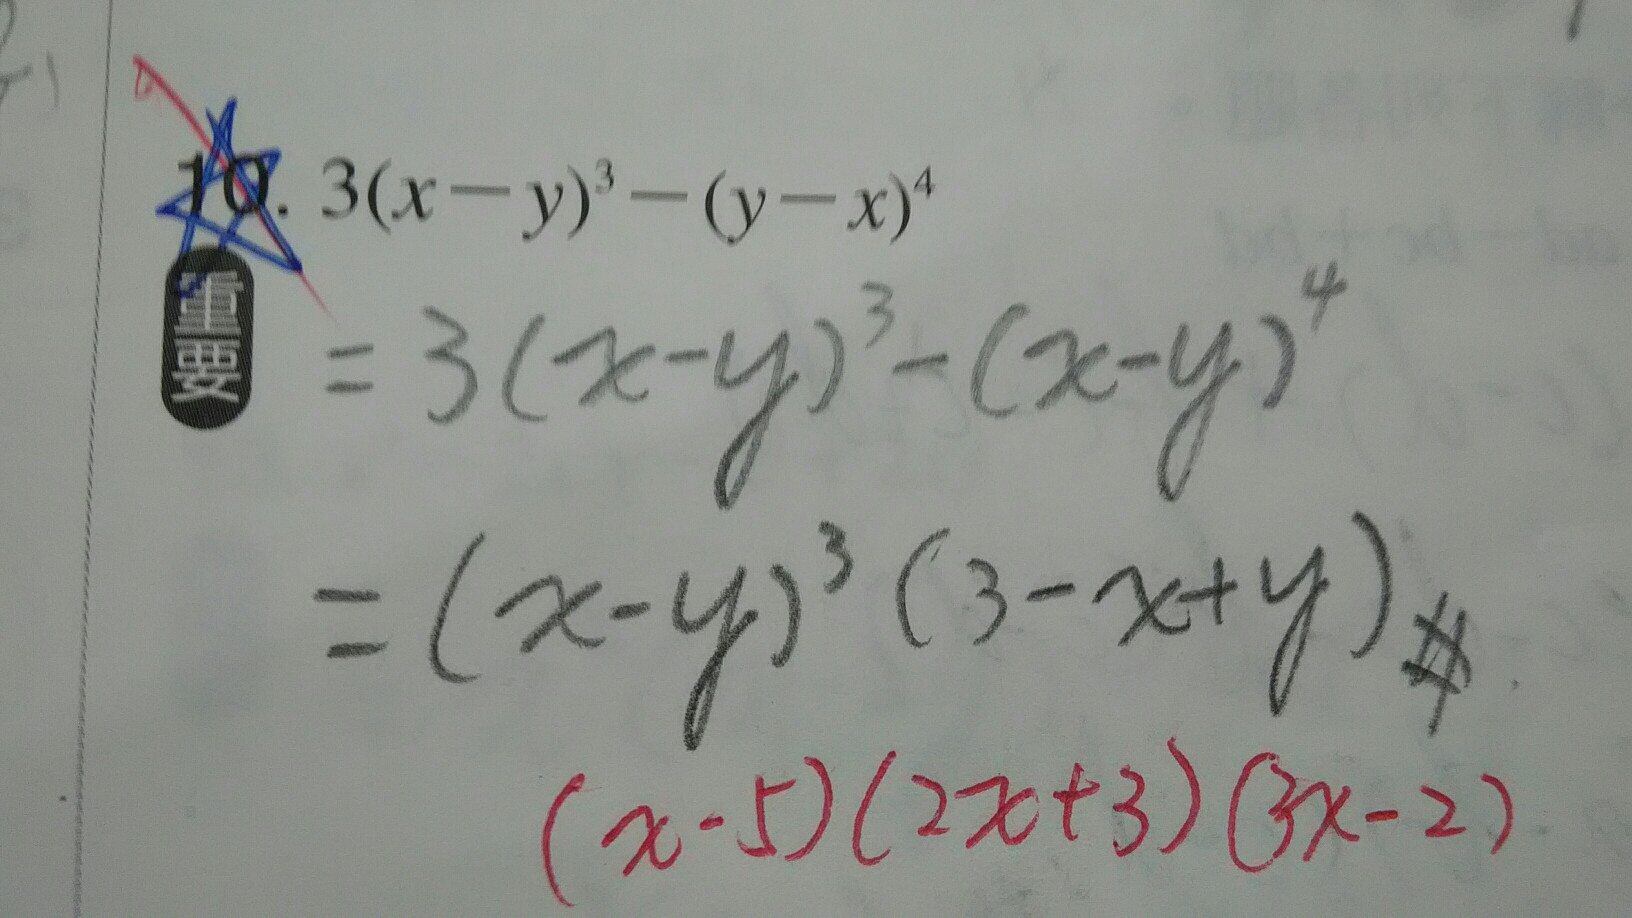 10. 3(x－y)³－(y－x)⁴
重要
= 3(x-y)³-(x-y)⁴
= (x-y)³(3-x+y)#
(x-5)(2x+3)(3x-2)